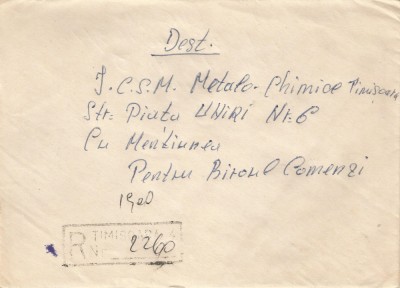 Dest.
I.C.S.M. Metalo-Chimice Timișoara
Str: Piața UNIRI Nr: 6
Cu Mențiunea
Pentru Biroul Comenzi
R TIMIȘOARA 4
Nr. 2260